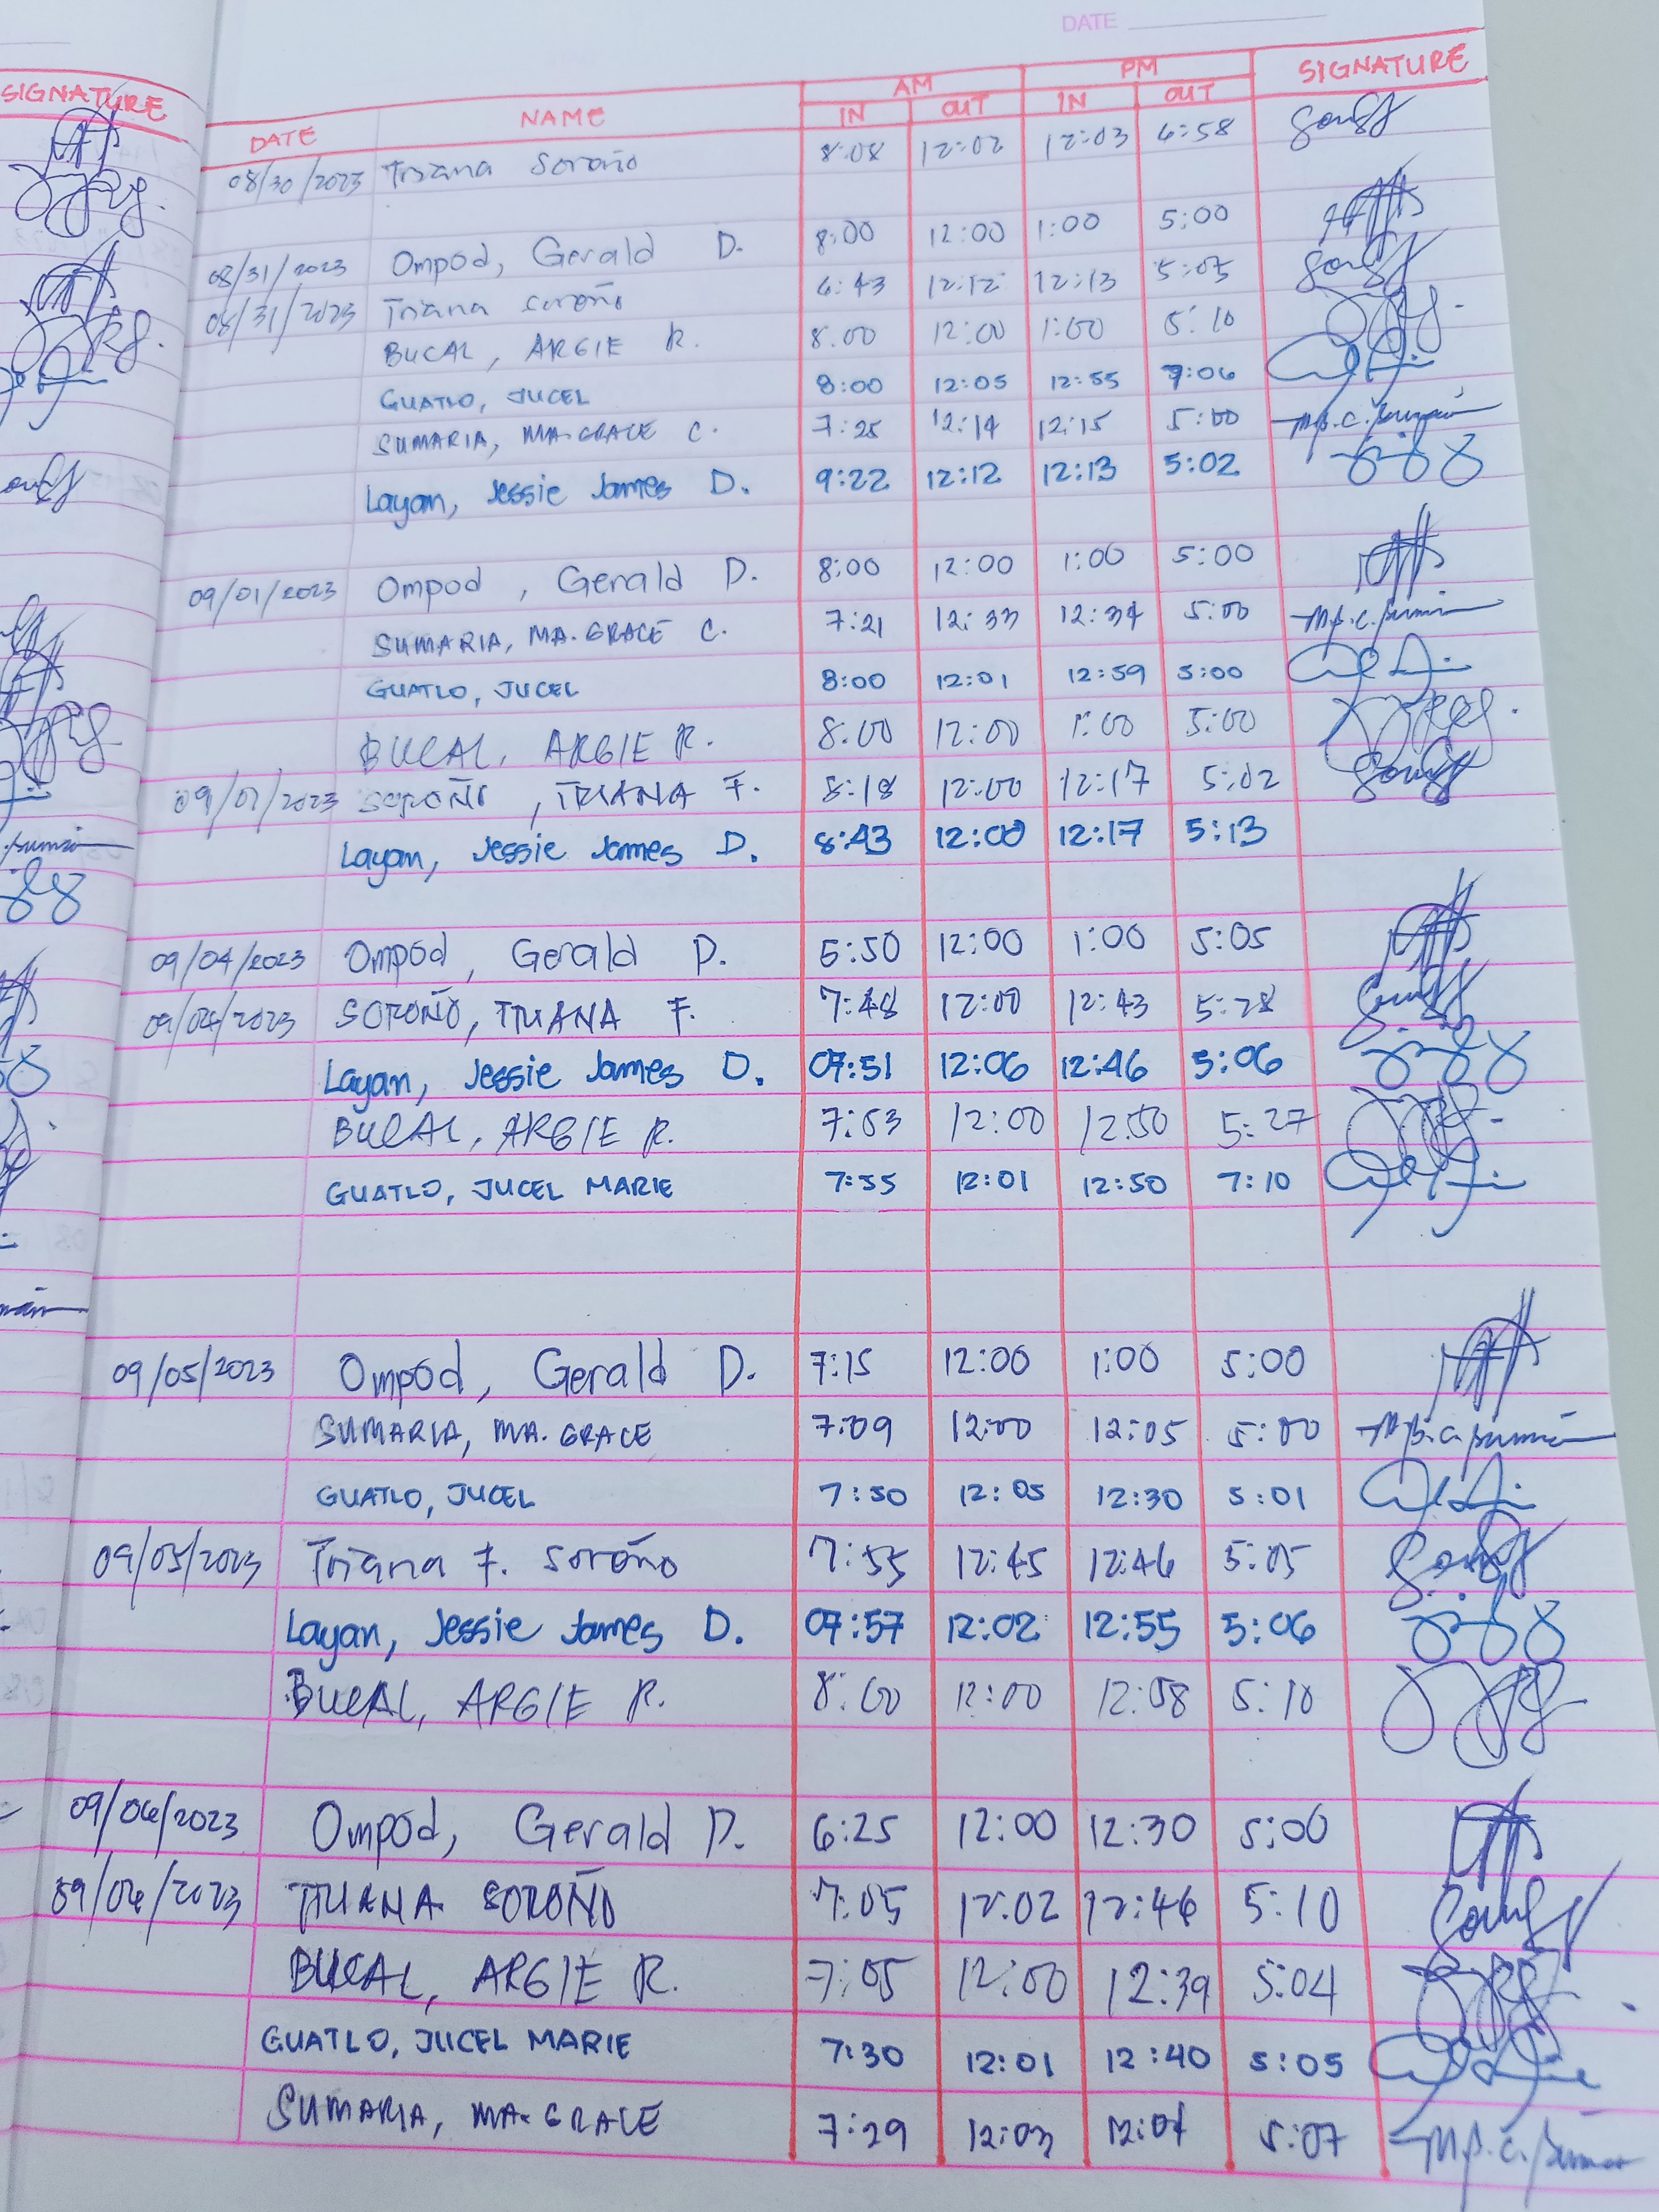 DATE
SIGNATURE
DATE NAME AM PM SIGNATURE
IN OUT IN OUT
08/30/2023 Triana Soroño 8:08 12:02 12:03 6:58
08/31/2023 Ompod, Gerald D. 8:00 12:00 1:00 5:00
08/31/2023 Triana Soroño 6:43 12:12 12:13 5:05
BUCAL, ARGIE R. 8:00 12:00 1:00 5:10
GUATLO, JUCEL 8:00 12:05 12:55 7:06
SUMARIA, MA. GRACE C. 7:25 12:14 12:15 5:00
Layan, Jessie James D. 9:22 12:12 12:13 5:02
09/01/2023 Ompod, Gerald D. 8:00 12:00 1:00 5:00
SUMARIA, MA. GRACE C. 7:21 12:33 12:34 5:00
GUATLO, JUCEL 8:00 12:01 12:59 5:00
BUCAL, ARGIE R. 8:00 12:00 1:00 5:00
09/01/2023 SOROÑO, TRIANA F. 8:18 12:00 12:17 5:02
Layan, Jessie James D. 8:43 12:00 12:17 5:13
09/04/2023 Ompod, Gerald D. 6:50 12:00 1:00 5:05
09/04/2023 SOROÑO, TRIANA F. 7:48 12:00 12:43 5:28
Layan, Jessie James D. 07:51 12:06 12:46 5:06
BUCAL, ARGIE R. 7:53 12:00 12:50 5:27
GUATLO, JUCEL MARIE 7:55 12:01 12:50 7:10
09/05/2023 Ompod, Gerald D. 7:15 12:00 1:00 5:00
SUMARIA, MA. GRACE 7:09 12:00 12:05 5:00
GUATLO, JUCEL 7:50 12:05 12:30 5:01
09/05/2023 Triana F. Soroño 7:55 12:45 12:46 5:05
Layan, Jessie James D. 07:57 12:02 12:55 5:06
BUCAL, ARGIE R. 8:00 12:00 12:58 5:10
09/06/2023 Ompod, Gerald D. 6:25 12:00 12:30 5:00
09/06/2023 TRIANA SOROÑO 7:05 12:02 12:46 5:10
BUCAL, ARGIE R. 7:05 12:00 12:39 5:04
GUATLO, JUCEL MARIE 7:30 12:01 12:40 5:05
SUMARIA, MA. GRACE 7:29 12:03 12:04 5:07